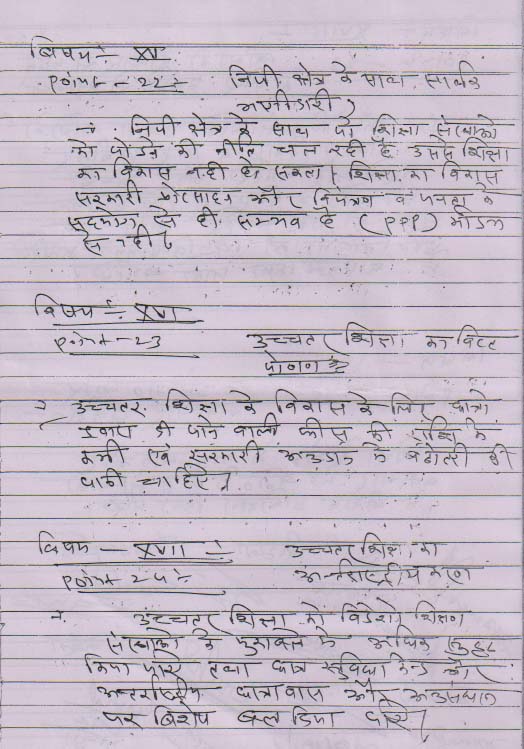 विषय :- XV
Point - 22 :- निजी क्षेत्र के साथ सार्थक
भागीदारी।
→ निजी क्षेत्र के साथ जो शिक्षा संस्थाओं
को जोड़ने की नीति चल रही है उससे शिक्षा
का विकास नही हो सकता। शिक्षा का विकास
सरकारी प्रोत्साहन और नियंत्रण व जनता के
सहयोग से ही सम्भव है (PPP) मॉडल
से नही।
विषय :- XVI
Point - 23 उच्चतर शिक्षा का वित्त
पोषण :-
→ उच्चतर शिक्षा के विकास के लिए छात्रो
द्वारा दी जाने वाली फीस की राशि में
कमी एवं सरकारी अनुदान में बढोतरी की
जानी चाहिए।
विषय - XVII :- उच्चतर शिक्षा का
Point 24 :- अन्तर्राष्ट्रीयकरण
→ उच्चतर शिक्षा को विदेशी शिक्षण
संस्थाओं के मुकाबले में अधिक सुदृढ
किया जाये तथा छात्र सुविधा केन्द्र और
अन्तर्राष्ट्रीय छात्रावास और अनुसंधान
पर विशेष बल दिया जाये।